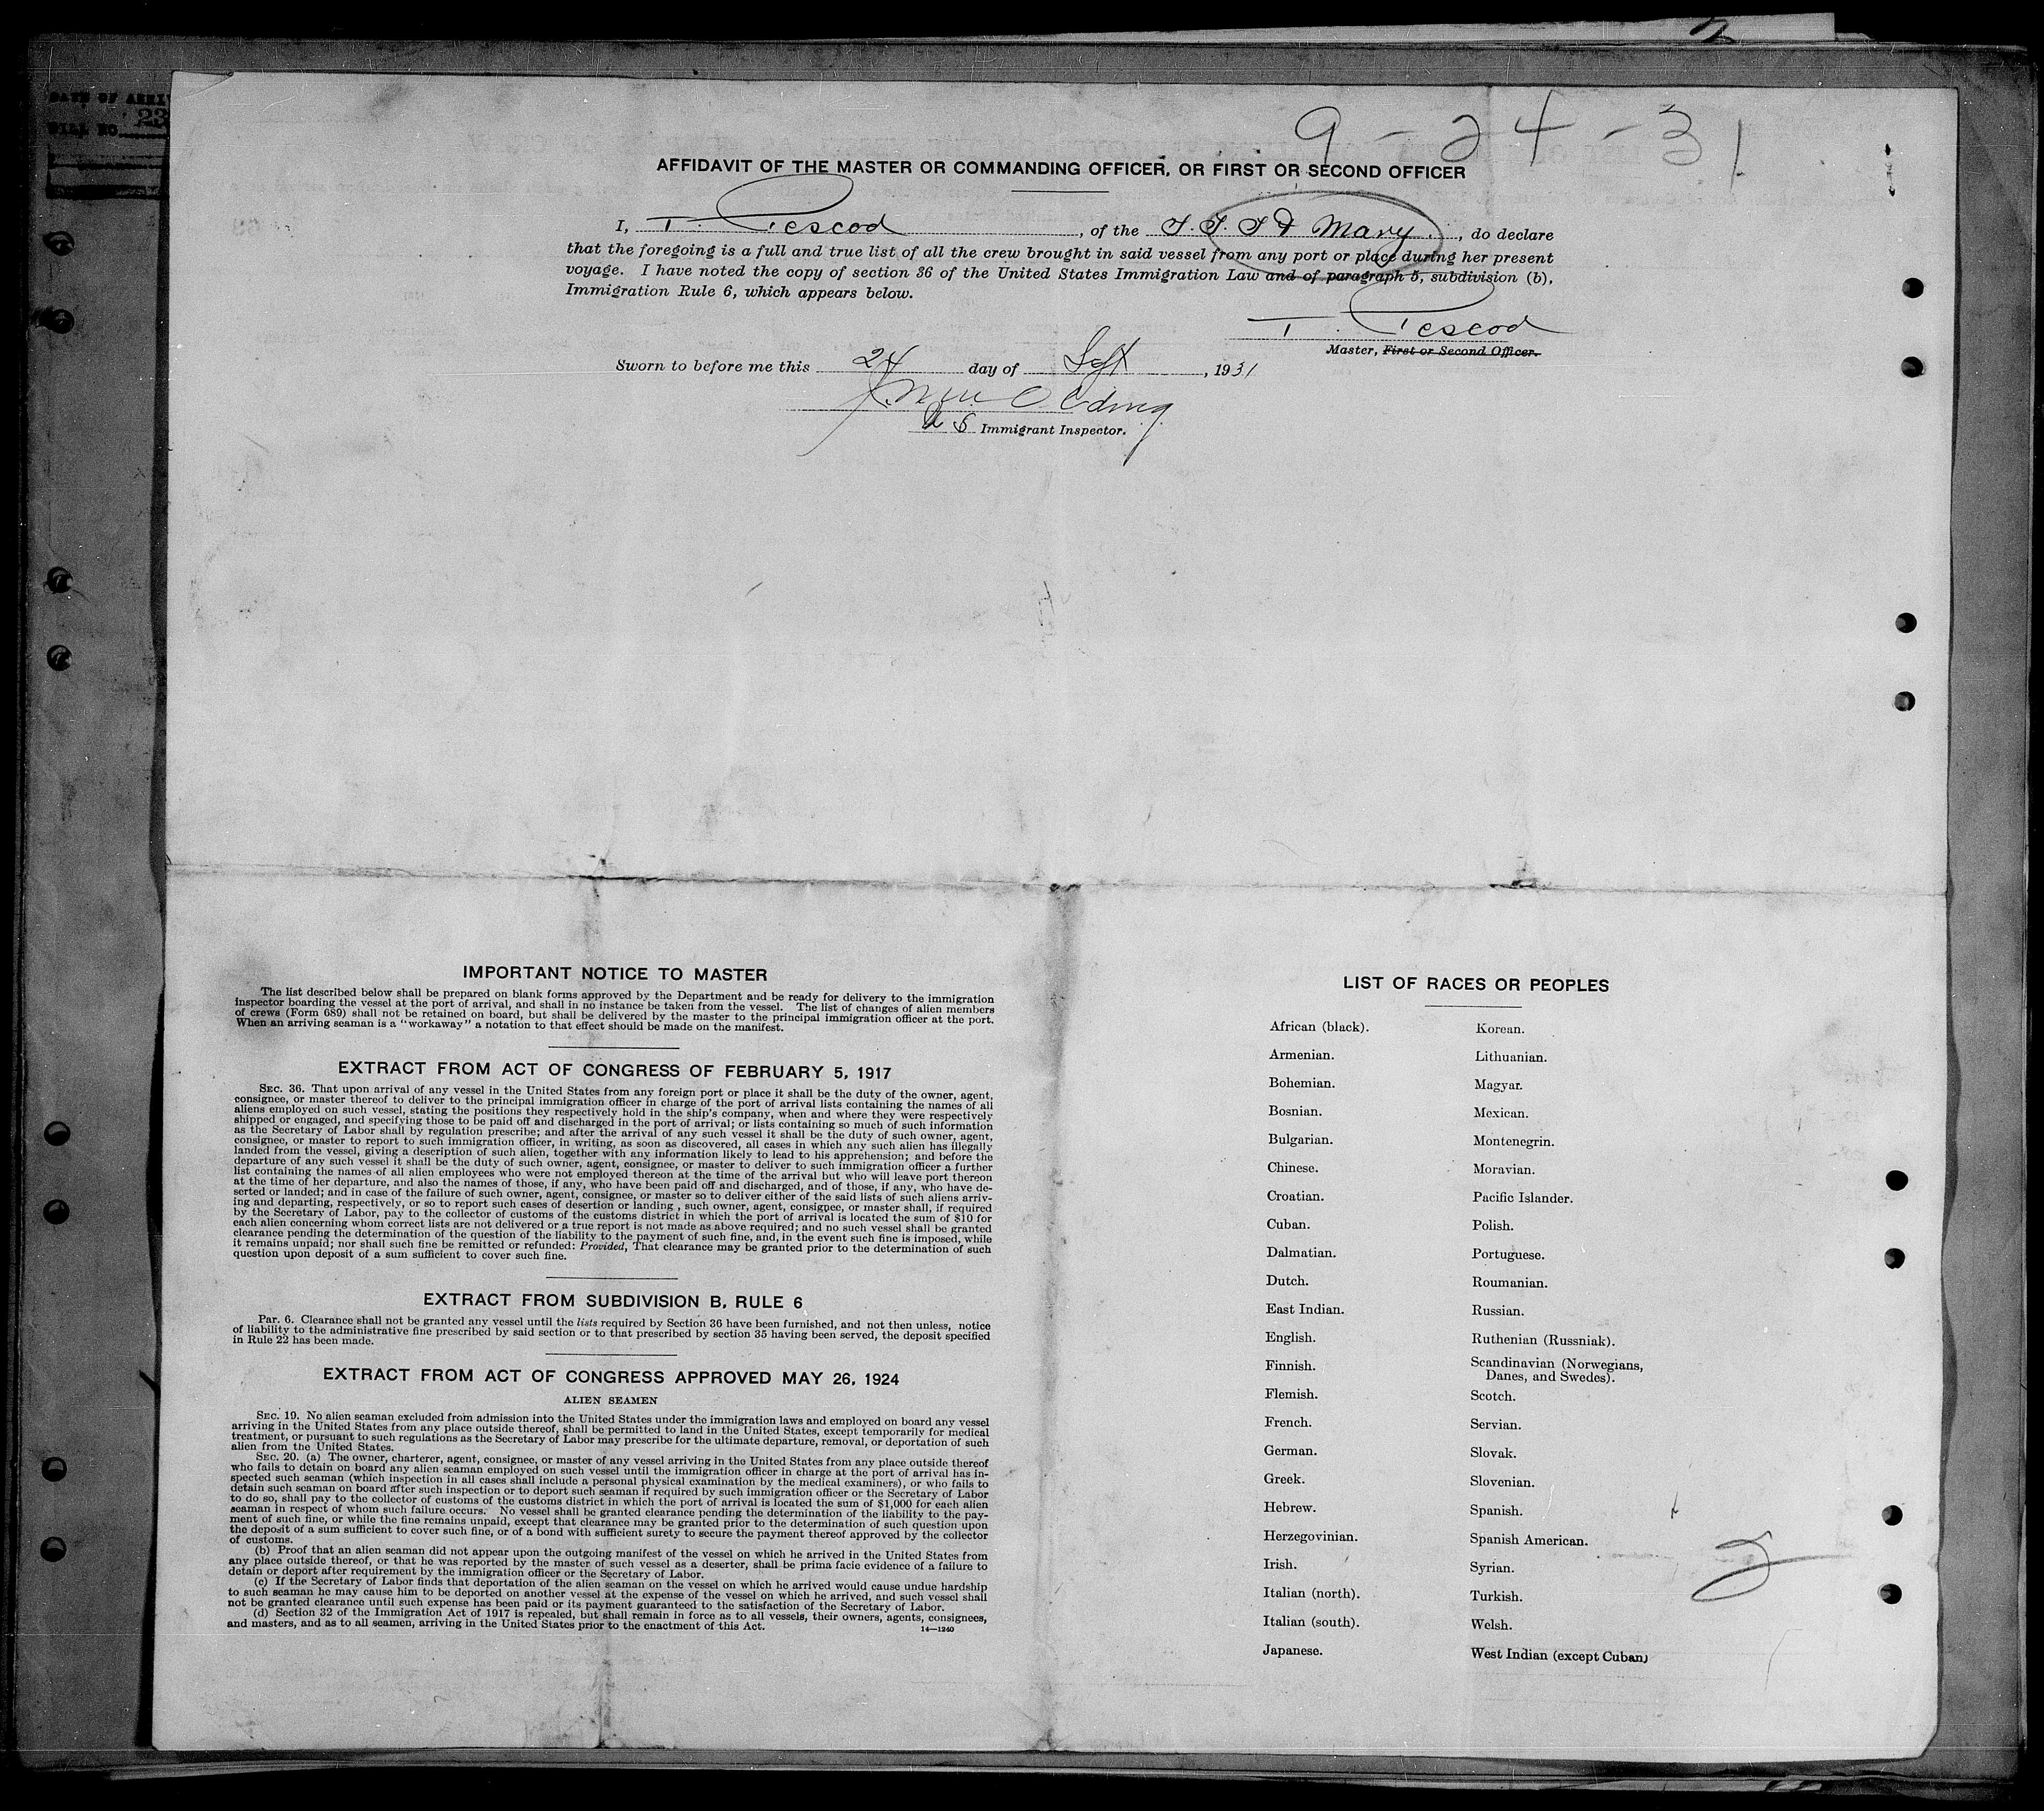 DATE OF ARRI
BILL NO. 23
9-24-31
AFFIDAVIT OF THE MASTER OR COMMANDING OFFICER, OR FIRST OR SECOND OFFICER
I, T. Pescod, of the S.S. Sd Mary, do declare
that the foregoing is a full and true list of all the crew brought in said vessel from any port or place during her present
voyage. I have noted the copy of section 36 of the United States Immigration Law and of paragraph 5, subdivision (b),
Immigration Rule 6, which appears below.
T. Pescod
Master, First or Second Officer.
Sworn to before me this 24 day of Sept, 1931
U S Immigrant Inspector.
IMPORTANT NOTICE TO MASTER
The list described below shall be prepared on blank forms approved by the Department and be ready for delivery to the immigration
inspector boarding the vessel at the port of arrival, and shall in no instance be taken from the vessel. The list of changes of alien members
of crews (Form 689) shall not be retained on board, but shall be delivered by the master to the principal immigration officer at the port.
When an arriving seaman is a "workaway" a notation to that effect should be made on the manifest.
EXTRACT FROM ACT OF CONGRESS OF FEBRUARY 5, 1917
SEC. 36. That upon arrival of any vessel in the United States from any foreign port or place it shall be the duty of the owner, agent,
consignee, or master thereof to deliver to the principal immigration officer in charge of the port of arrival lists containing the names of all
aliens employed on such vessel, stating the positions they respectively hold in the ship's company, when and where they were respectively
shipped or engaged, and specifying those to be paid off and discharged in the port of arrival; or lists containing so much of such information
as the Secretary of Labor shall by regulation prescribe; and after the arrival of any such vessel it shall be the duty of such owner, agent,
consignee, or master to report to such immigration officer, in writing, as soon as discovered, all cases in which any such alien has illegally
landed from the vessel, giving a description of such alien, together with any information likely to lead to his apprehension; and before the
departure of any such vessel it shall be the duty of such owner, agent, consignee, or master to deliver to such immigration officer a further
list containing the names of all alien employees who were not employed thereon at the time of the arrival but who will leave port thereon
at the time of her departure, and also the names of those, if any, who have been paid off and discharged, and of those, if any, who have de-
serted or landed; and in case of the failure of such owner, agent, consignee, or master so to deliver either of the said lists of such aliens arriv-
ing and departing, respectively, or so to report such cases of desertion or landing, such owner, agent, consignee, or master shall, if required
by the Secretary of Labor, pay to the collector of customs of the customs district in which the port of arrival is located the sum of $10 for
each alien concerning whom correct lists are not delivered or a true report is not made as above required; and no such vessel shall be granted
clearance pending the determination of the question of the liability to the payment of such fine, and, in the event such fine is imposed, while
it remains unpaid; nor shall such fine be remitted or refunded: Provided, That clearance may be granted prior to the determination of such
question upon deposit of a sum sufficient to cover such fine.
EXTRACT FROM SUBDIVISION B, RULE 6
Par. 6. Clearance shall not be granted any vessel until the lists required by Section 36 have been furnished, and not then unless, notice
of liability to the administrative fine prescribed by said section or to that prescribed by section 35 having been served, the deposit specified
in Rule 22 has been made.
EXTRACT FROM ACT OF CONGRESS APPROVED MAY 26, 1924
ALIEN SEAMEN
SEC. 19. No alien seaman excluded from admission into the United States under the immigration laws and employed on board any vessel
arriving in the United States from any place outside thereof, shall be permitted to land in the United States, except temporarily for medical
treatment, or pursuant to such regulations as the Secretary of Labor may prescribe for the ultimate departure, removal, or deportation of such
alien from the United States.
SEC. 20. (a) The owner, charterer, agent, consignee, or master of any vessel arriving in the United States from any place outside thereof
who fails to detain on board any alien seaman employed on such vessel until the immigration officer in charge at the port of arrival has in-
spected such seaman (which inspection in all cases shall include a personal physical examination by the medical examiners), or who fails to
detain such seaman on board after such inspection or to deport such seaman if required by such immigration officer or the Secretary of Labor
to do so, shall pay to the collector of customs of the customs district in which the port of arrival is located the sum of $1,000 for each alien
seaman in respect of whom such failure occurs. No vessel shall be granted clearance pending the determination of the liability to the pay-
ment of such fine, or while the fine remains unpaid, except that clearance may be granted prior to the determination of such question upon
the deposit of a sum sufficient to cover such fine, or of a bond with sufficient surety to secure the payment thereof approved by the collector
of customs.
(b) Proof that an alien seaman did not appear upon the outgoing manifest of the vessel on which he arrived in the United States from
any place outside thereof, or that he was reported by the master of such vessel as a deserter, shall be prima facie evidence of a failure to
detain or deport after requirement by the immigration officer or the Secretary of Labor.
(c) If the Secretary of Labor finds that deportation of the alien seaman on the vessel on which he arrived would cause undue hardship
to such seaman he may cause him to be deported on another vessel at the expense of the vessel on which he arrived, and such vessel shall
not be granted clearance until such expense has been paid or its payment guaranteed to the satisfaction of the Secretary of Labor.
(d) Section 32 of the Immigration Act of 1917 is repealed, but shall remain in force as to all vessels, their owners, agents, consignees,
and masters, and as to all seamen, arriving in the United States prior to the enactment of this Act.
14—1240
LIST OF RACES OR PEOPLES
African (black).
Armenian.
Bohemian.
Bosnian.
Bulgarian.
Chinese.
Croatian.
Cuban.
Dalmatian.
Dutch.
East Indian.
English.
Finnish.
Flemish.
French.
German.
Greek.
Hebrew.
Herzegovinian.
Irish.
Italian (north).
Italian (south).
Japanese.
Korean.
Lithuanian.
Magyar.
Mexican.
Montenegrin.
Moravian.
Pacific Islander.
Polish.
Portuguese.
Roumanian.
Russian.
Ruthenian (Russniak).
Scandinavian (Norwegians,
Danes, and Swedes).
Scotch.
Servian.
Slovak.
Slovenian.
Spanish.
Spanish American.
Syrian.
Turkish.
Welsh.
West Indian (except Cuban)
2